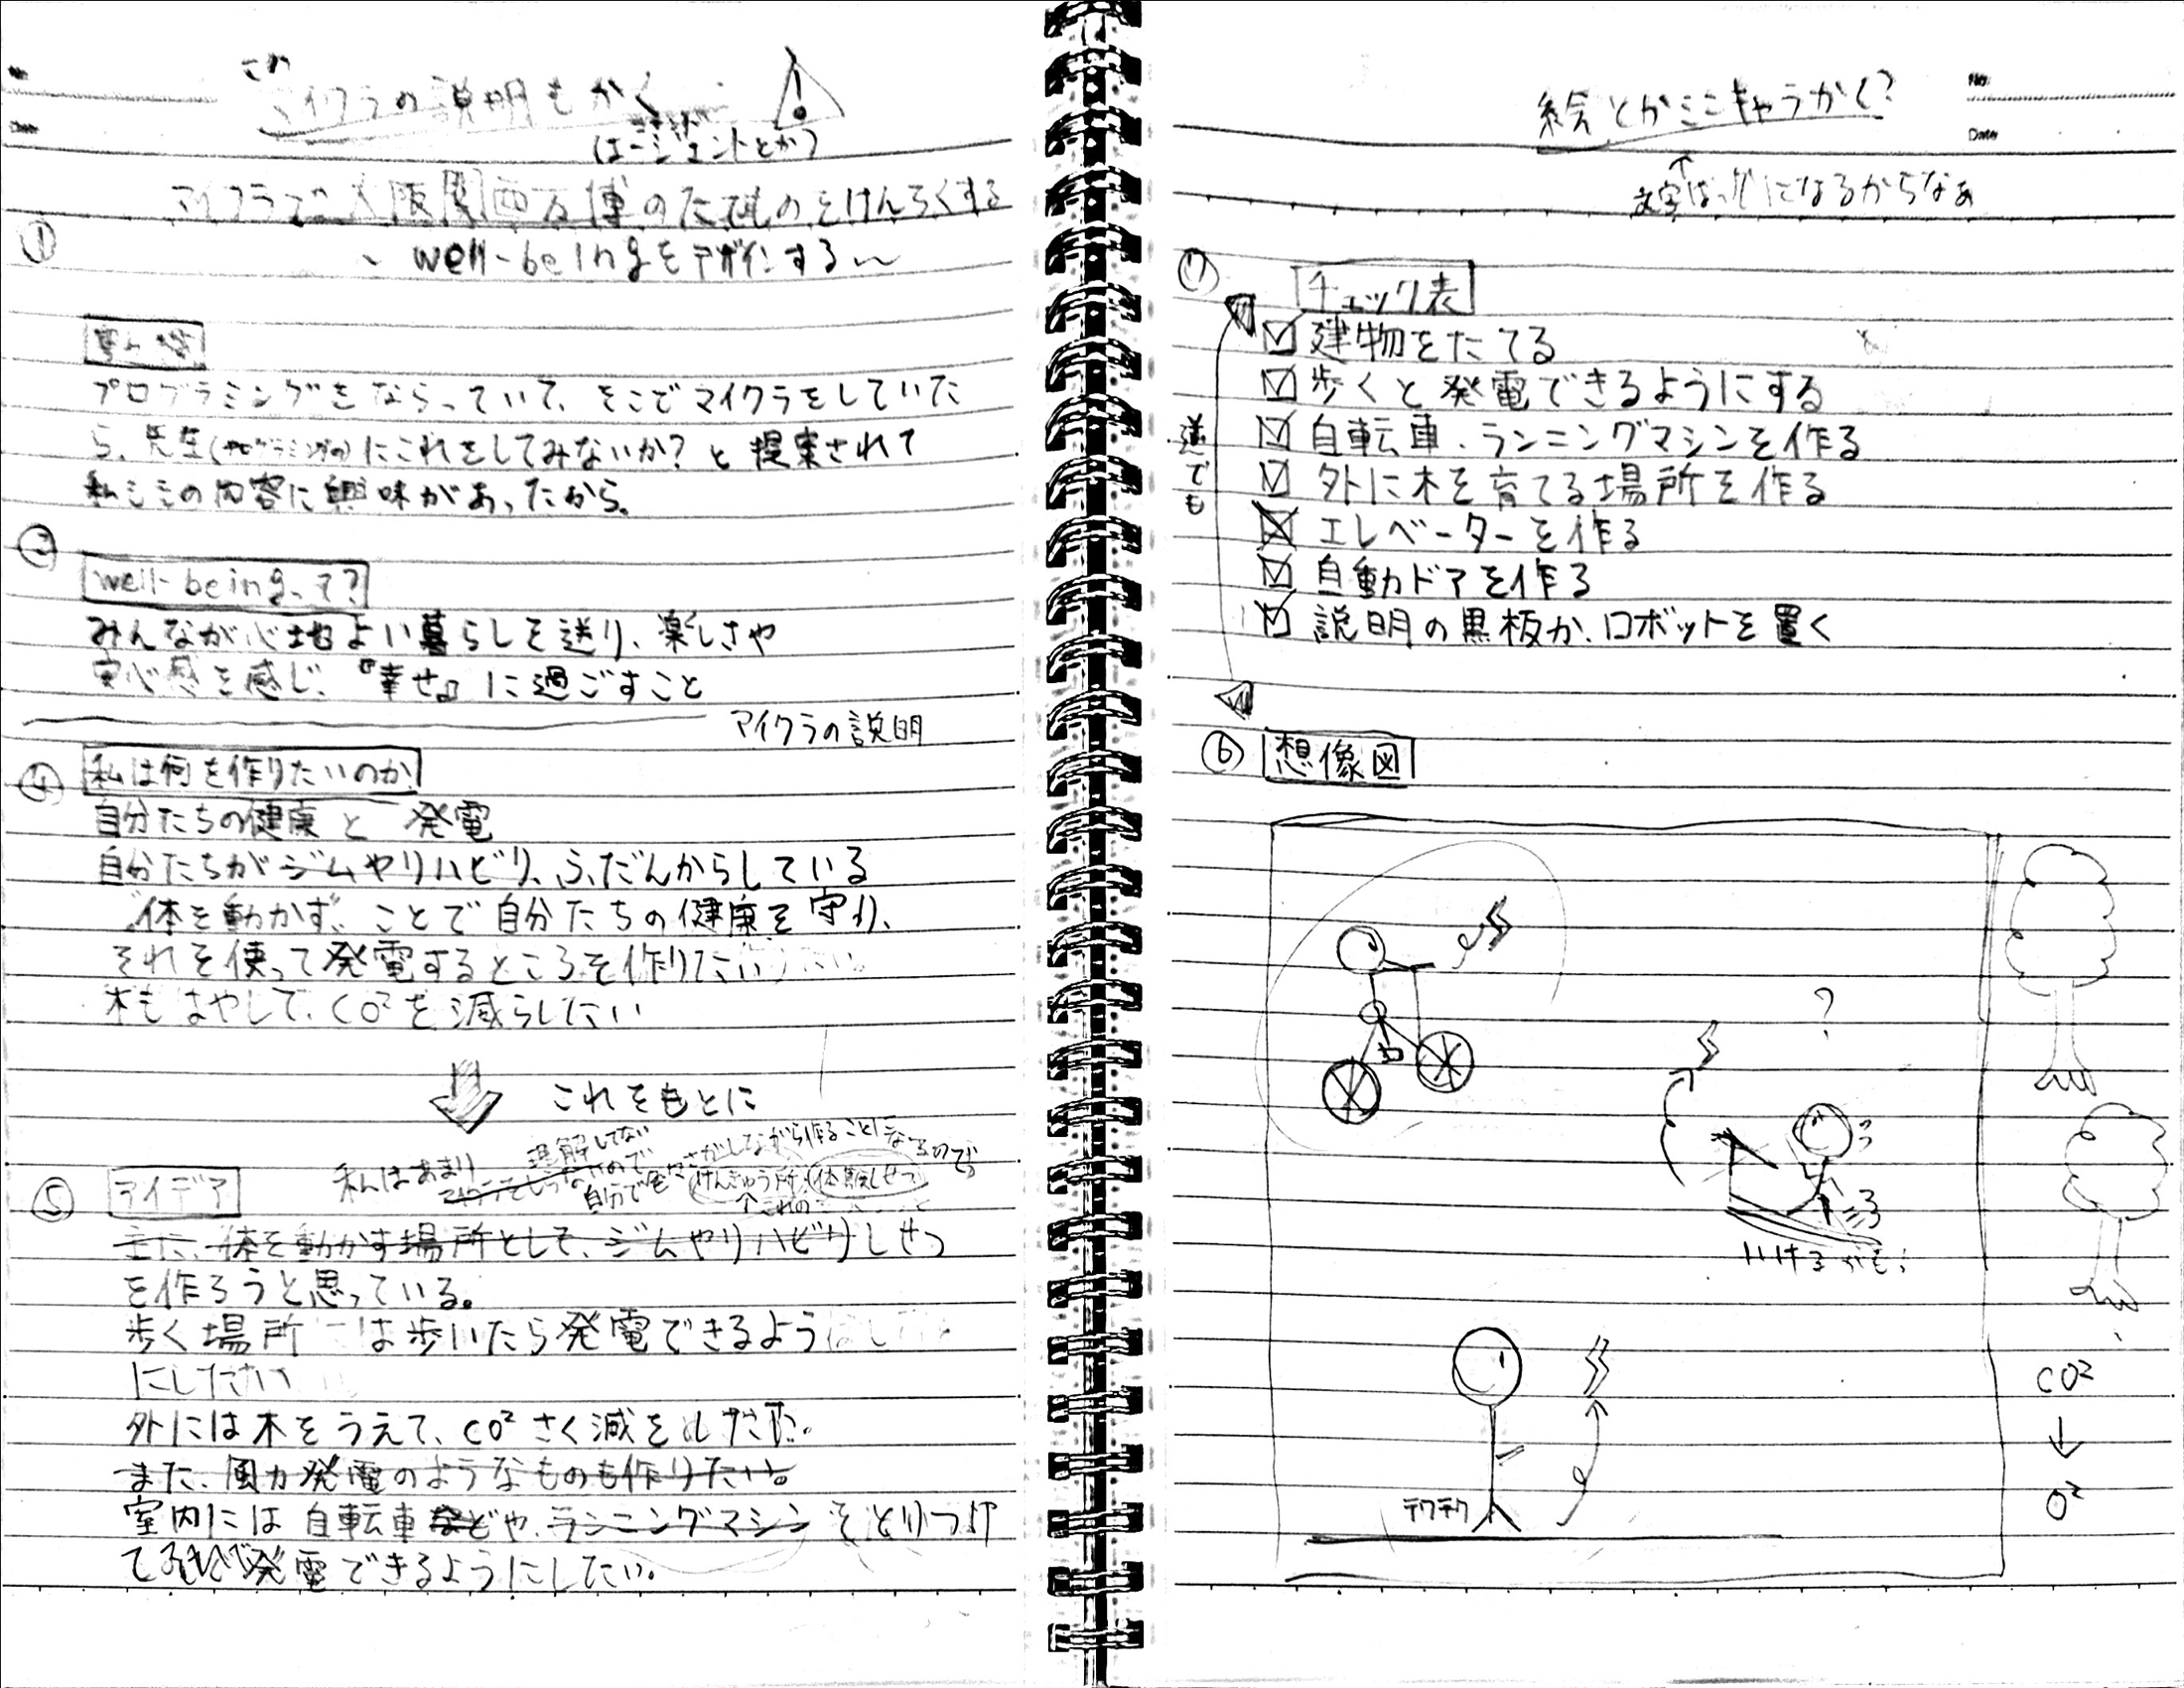 マイクラの説明もかく
マイクラで大阪関西万博のたてものをけんちくする
① ~well-beingをデザインする~
プログラミングをならっていて、そこでマイクラをしていた
ら、先生(プログラミングの)にこれをしてみないか?と提案されて
私もこの内容に興味があったから。
③
well-beingって?
みんなが心地よい暮らしを送り、楽しさや
安心感を感じ、『幸せ』に過ごすこと
マイクラの説明
④ 私は何を作りたいのか
自分たちの健康と 発電
自分たちがジムやリハビリ、ふだんからしている
"体を動かす"ことで自分たちの健康を守り、
それを使って発電するところを作りたい
木もはやして、CO²を減らしたい
これをもとに
私はあまり 理解してない
ので
自分で色々さがしながら作ることになるので
けんきゅう所(体験しせつ)
⑤ アイデア
また、体を動かす場所として、ジムやリハビリしせつ
を作ろうと思っている。
歩く場所には歩いたら発電できるよう
にしたい
外には木をうえて、CO²さく減を
また、風力発電のようなものも作りたい。
室内には自転車などや、ランニングマシンをとりつけ
発電できるようにしたい。
絵とかミニキャラかく?
↑
文字ばっかになるからなぁ
⑦ チェック表
☑ 建物をたてる
☑ 歩くと発電できるようにする
☑ 自転車、ランニングマシンを作る
逆でも
☑ 外に木を育てる場所を作る
☒ エレベーターを作る
☑ 自動ドアを作る
☑ 説明の黒板か、ロボットを置く
⑥ 想像図
?
いけるかも
テクテク
CO²
↓
O²